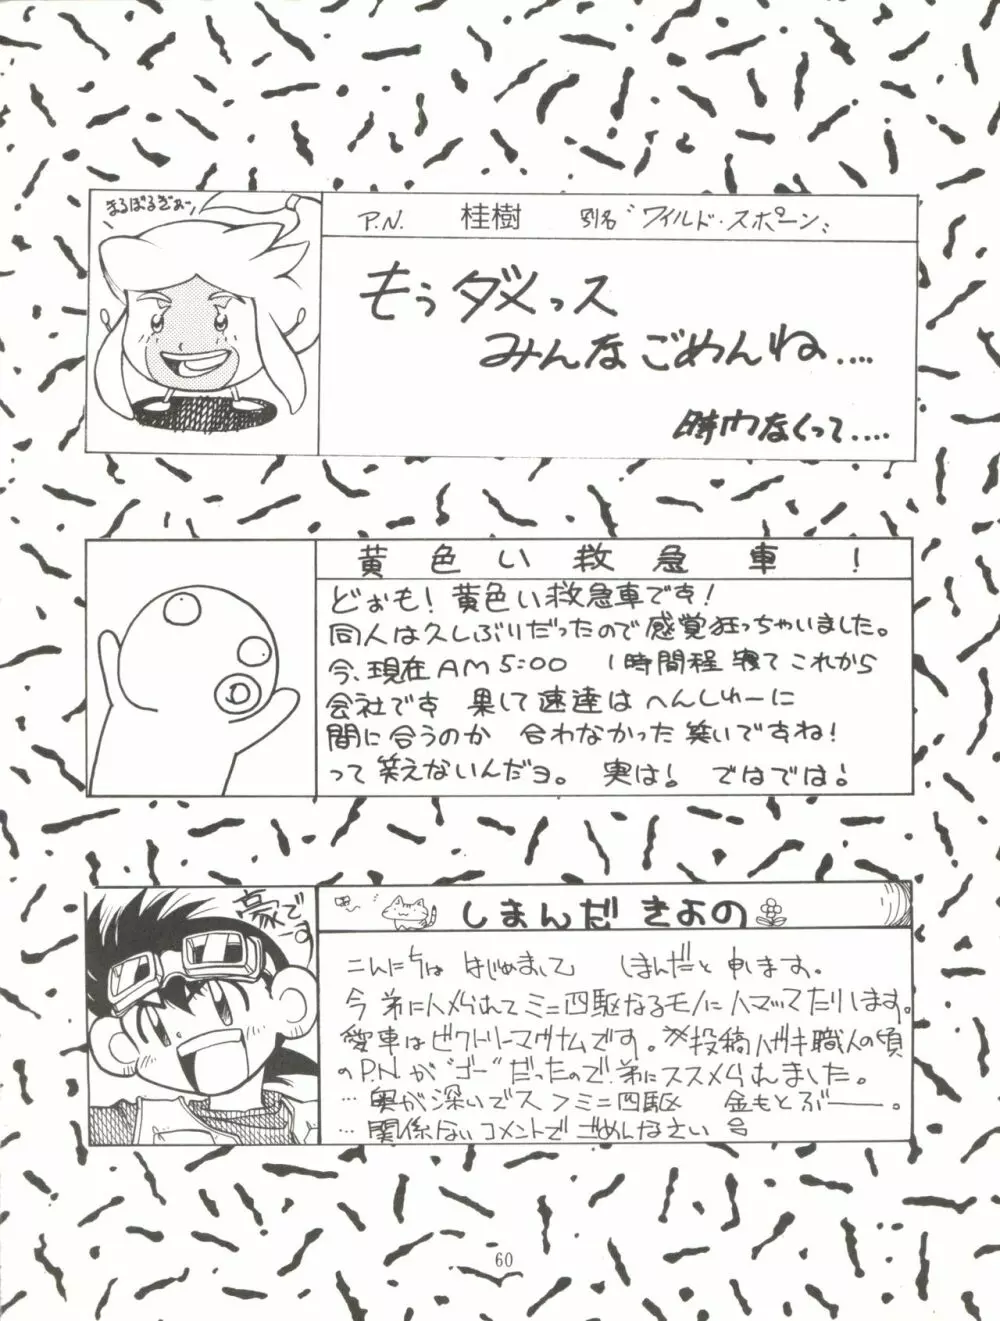 まるぼるぎぁー
P.N. 桂樹 別名"ワイルド・スポーン"
もぅダメっス
みんなごめんね....
時間なくって....
黄色い救急車!
どぉも! 黄色い救急車です!
同人は久しぶりだったので感覚狂っちゃいました。
今、現在AM5:00 1時間程寝てこれから
会社です 果して速達はへんしゅーに
間に合うのか 合わなかった笑いですね!
って笑えないんだョ。 実は! ではでは!
豪です
しまんだきよの
こんにちは はじめまして しまんだと申します。
今弟にハメられてミニ四駆なるモノにハマッてたりします。
愛車はビクトリーマグナムです。※投稿ハガキ職人の頃
のP.N.が"ゴー"だったので弟にススメられました。
…奥が深いでスミニ四駆 金もとぶ――。
…関係ないコメントでごめんなさい
60